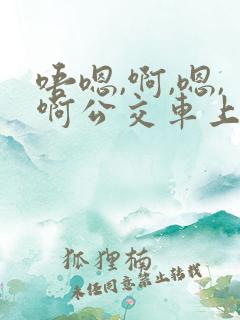 唔嗯,啊,嗯,
啊公交車上
狐狸楠
未经同意禁止转载